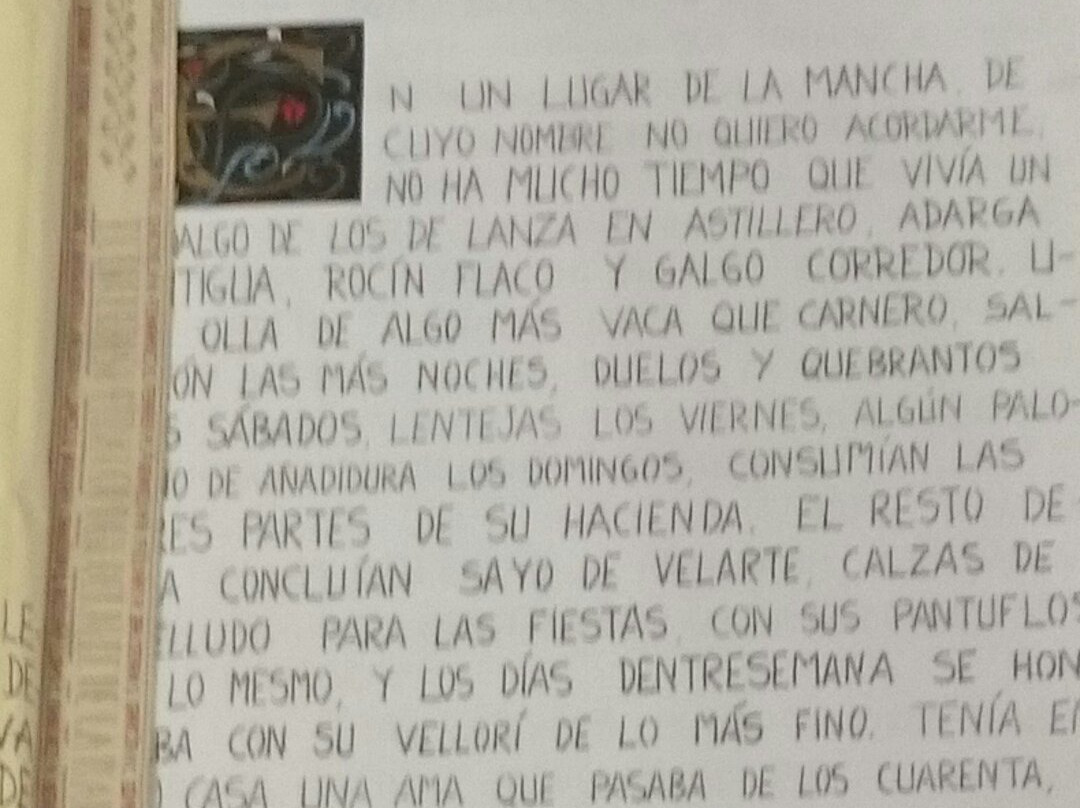 N UN LUGAR DE LA MANCHA, DE
CUYO NOMBRE NO QUIERO ACORDARME,
NO HA MUCHO TIEMPO QUE VIVÍA UN
ALGO DE LOS DE LANZA EN ASTILLERO, ADARGA
TIGUA, ROCÍN FLACO Y GALGO CORREDOR. U-
OLLA DE ALGO MÁS VACA QUE CARNERO, SAL-
ÓN LAS MÁS NOCHES, DUELOS Y QUEBRANTOS
S SÁBADOS, LENTEJAS LOS VIERNES, ALGÚN PALO-
NO DE AÑADIDURA LOS DOMINGOS, CONSUMÍAN LAS
RES PARTES DE SU HACIENDA. EL RESTO DE
A CONCLUÍAN SAYO DE VELARTE, CALZAS DE
ELLUDO PARA LAS FIESTAS, CON SUS PANTUFLOS
LO MESMO, Y LOS DÍAS DENTRESEMANA SE HON
BA CON SU VELLORÍ DE LO MÁS FINO. TENÍA EN
CASA UNA AMA QUE PASABA DE LOS CUARENTA,
LE
DE
VA
DE